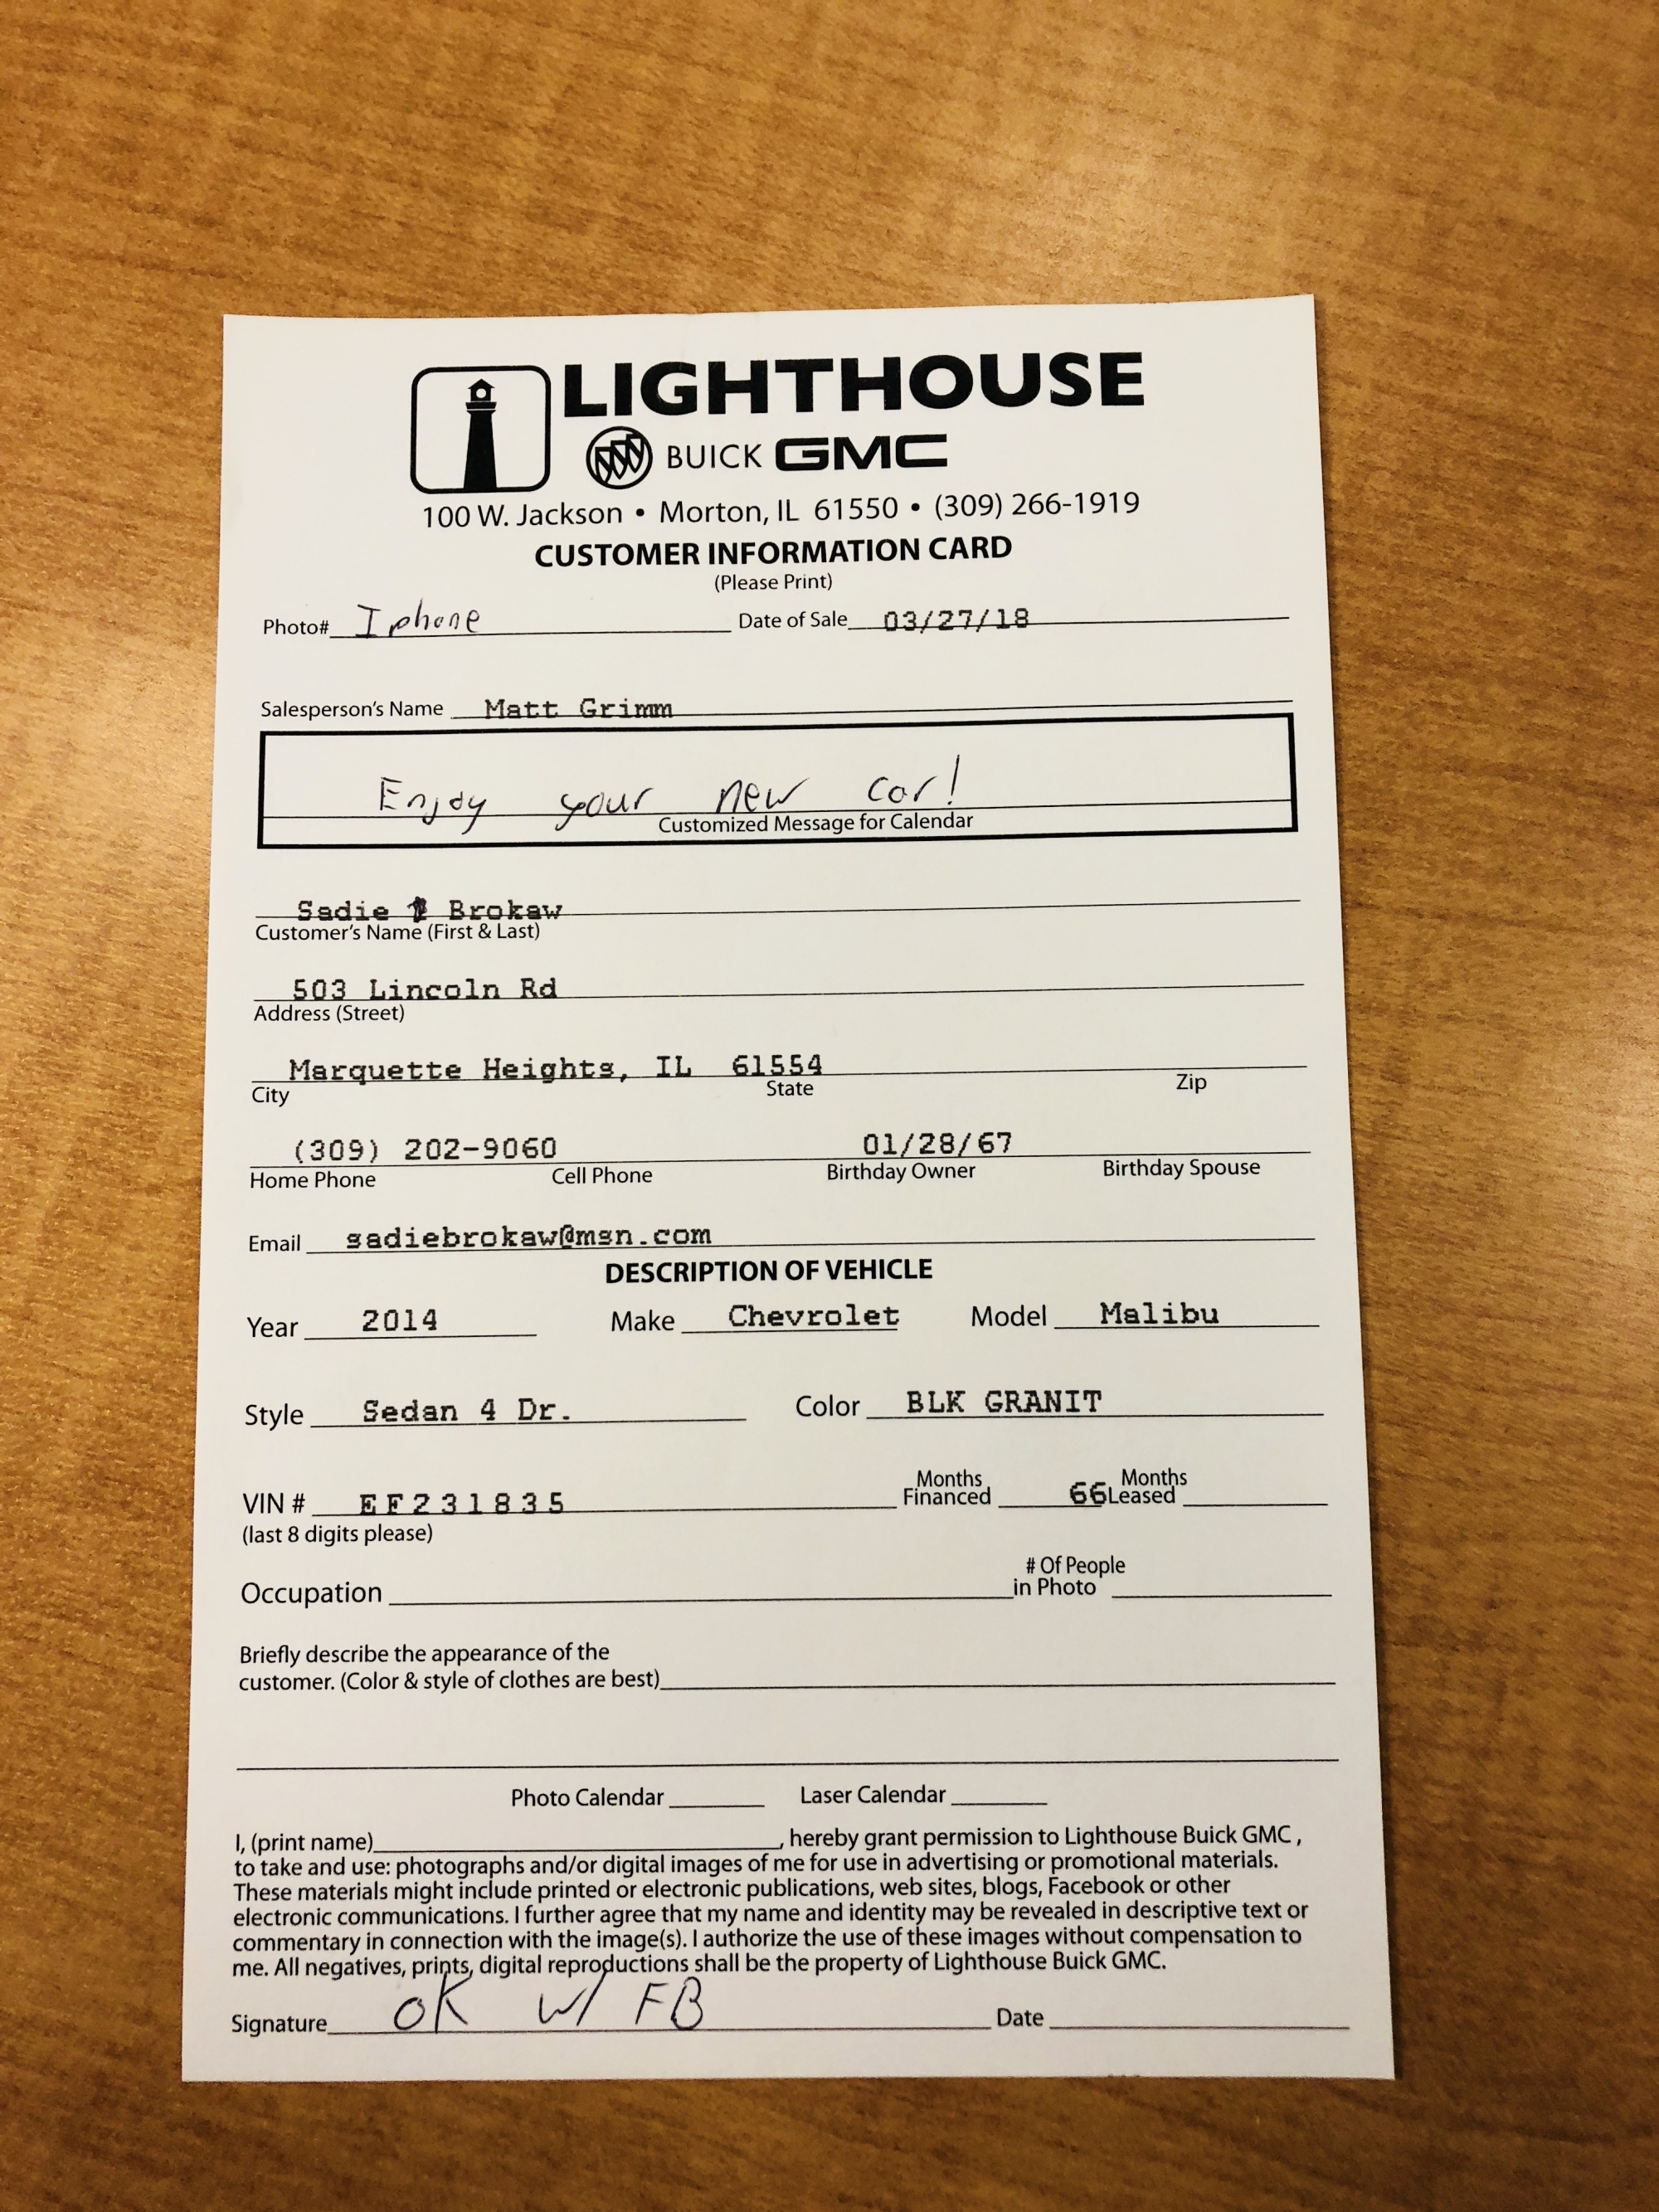 LIGHTHOUSE
BUICK GMC
100 W. Jackson • Morton, IL 61550 • (309) 266-1919
CUSTOMER INFORMATION CARD
(Please Print)
Photo# Iphone Date of Sale 03/27/18
Salesperson's Name Matt Grimm
Enjoy your new car!
Customized Message for Calendar
Sadie Brokaw
Customer's Name (First & Last)
503 Lincoln Rd
Address (Street)
Marquette Heights, IL 61554
City State Zip
(309) 202-9060 01/28/67
Home Phone Cell Phone Birthday Owner Birthday Spouse
Email sadiebrokaw@msn.com
DESCRIPTION OF VEHICLE
Year 2014 Make Chevrolet Model Malibu
Style Sedan 4 Dr. Color BLK GRANIT
Months Months
VIN # EF231835 Financed 66 Leased
(last 8 digits please)
# Of People
Occupation in Photo
Briefly describe the appearance of the
customer. (Color & style of clothes are best)
Photo Calendar Laser Calendar
I, (print name), hereby grant permission to Lighthouse Buick GMC ,
to take and use: photographs and/or digital images of me for use in advertising or promotional materials.
These materials might include printed or electronic publications, web sites, blogs, Facebook or other
electronic communications. I further agree that my name and identity may be revealed in descriptive text or
commentary in connection with the image(s). I authorize the use of these images without compensation to
me. All negatives, prints, digital reproductions shall be the property of Lighthouse Buick GMC.
Signature OK W/ FB Date